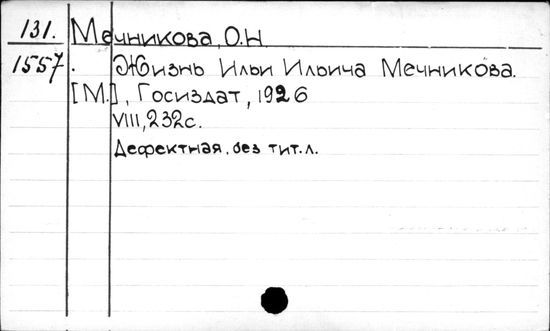 131. Мечникова, О.Н
1557. Жизнь Ильи Ильича Мечникова.
[М.], Госиздат, 1926
VIII, 232с.
Дефектная, без тит.л.